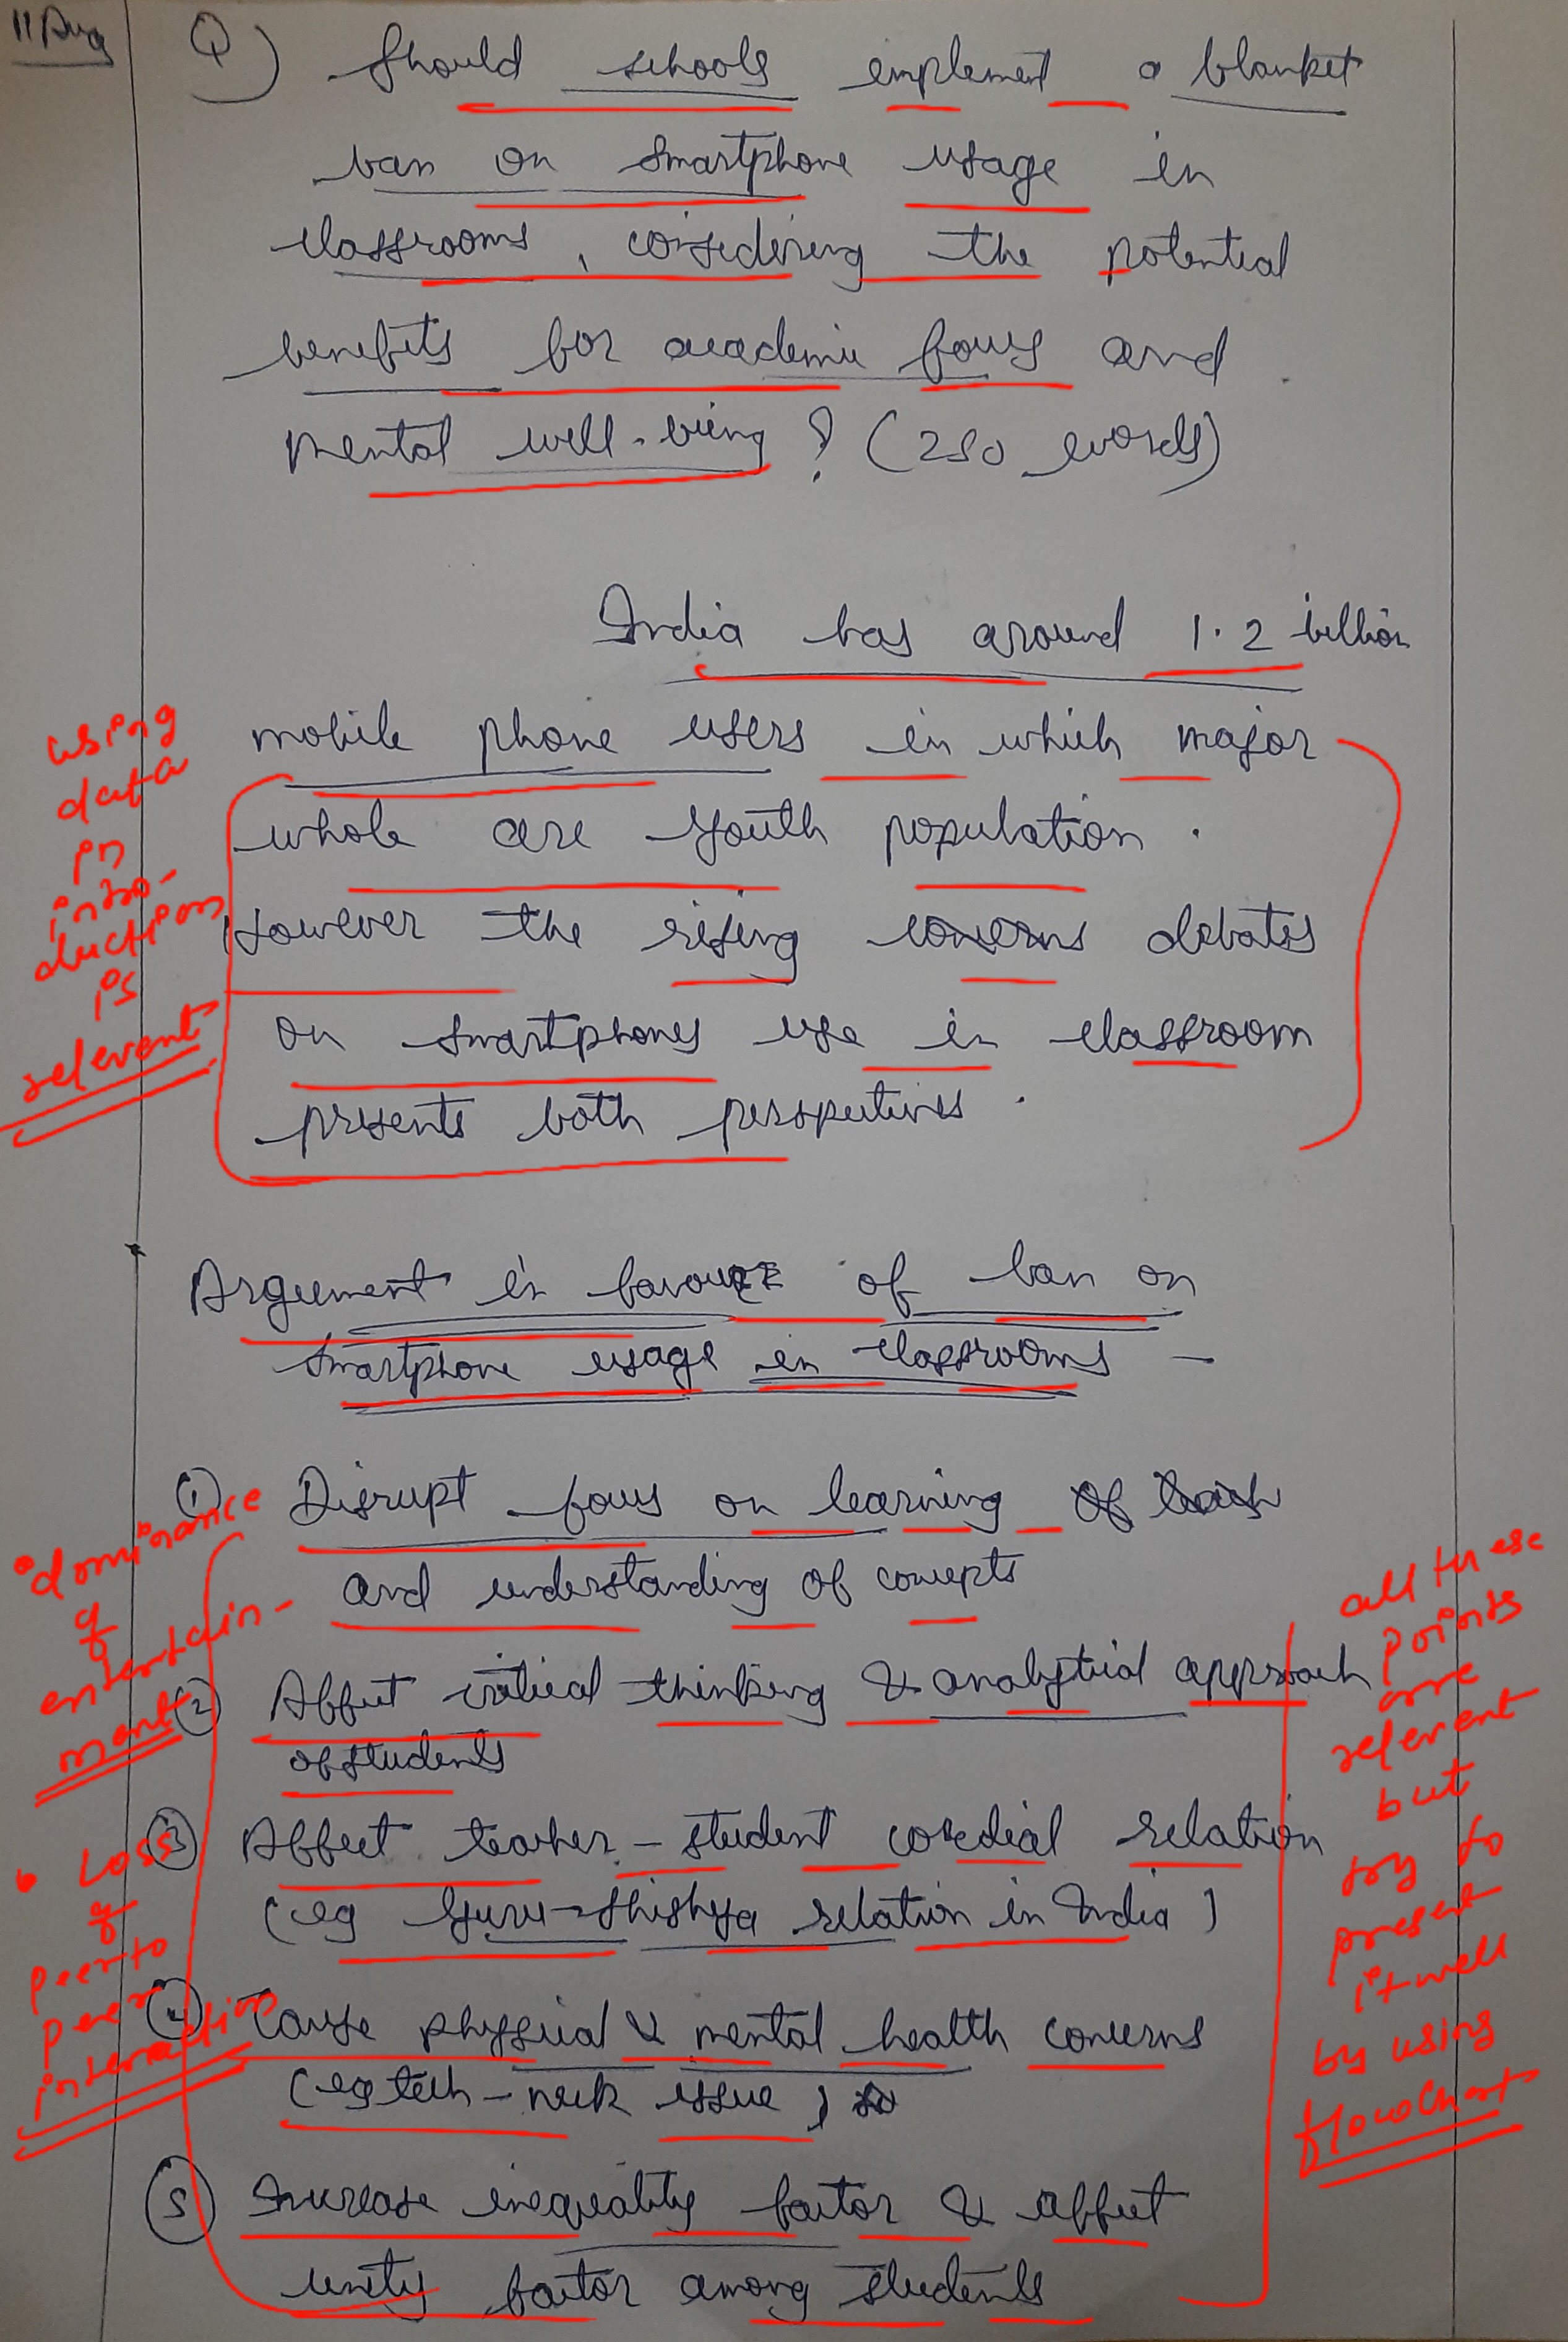 11 Aug
Q) Should schools implement a blanket
ban on smartphone usage in
classrooms, considering the potential
benefits for academic focus and
mental well-being? (250 words)
India has around 1.2 billion
mobile phone users in which major
whole are youth population.
However the rising concerns debates
on smartphones use in classroom
presents both perspectives.
using
data
in
intro-
duction
is
relevent
Arguement in favour of ban on
smartphone usage in classrooms -
① Disrupt focus on learning of
and understanding of concepts
② Affect critical thinking & analytical approach
of students
③ Affect teacher - student cordial relation
(eg Guru-Shishya relation in India)
④ Cause physical & mental health concerns
(eg tech-neck issue)
⑤ Increase inequality factor & affect
unity factor among students
• dominance
of
entertain-
ment
• Loss
of
peer to
peer
interaction
all these
points
are
relevent
but
try to
present
it well
by using
flowchart